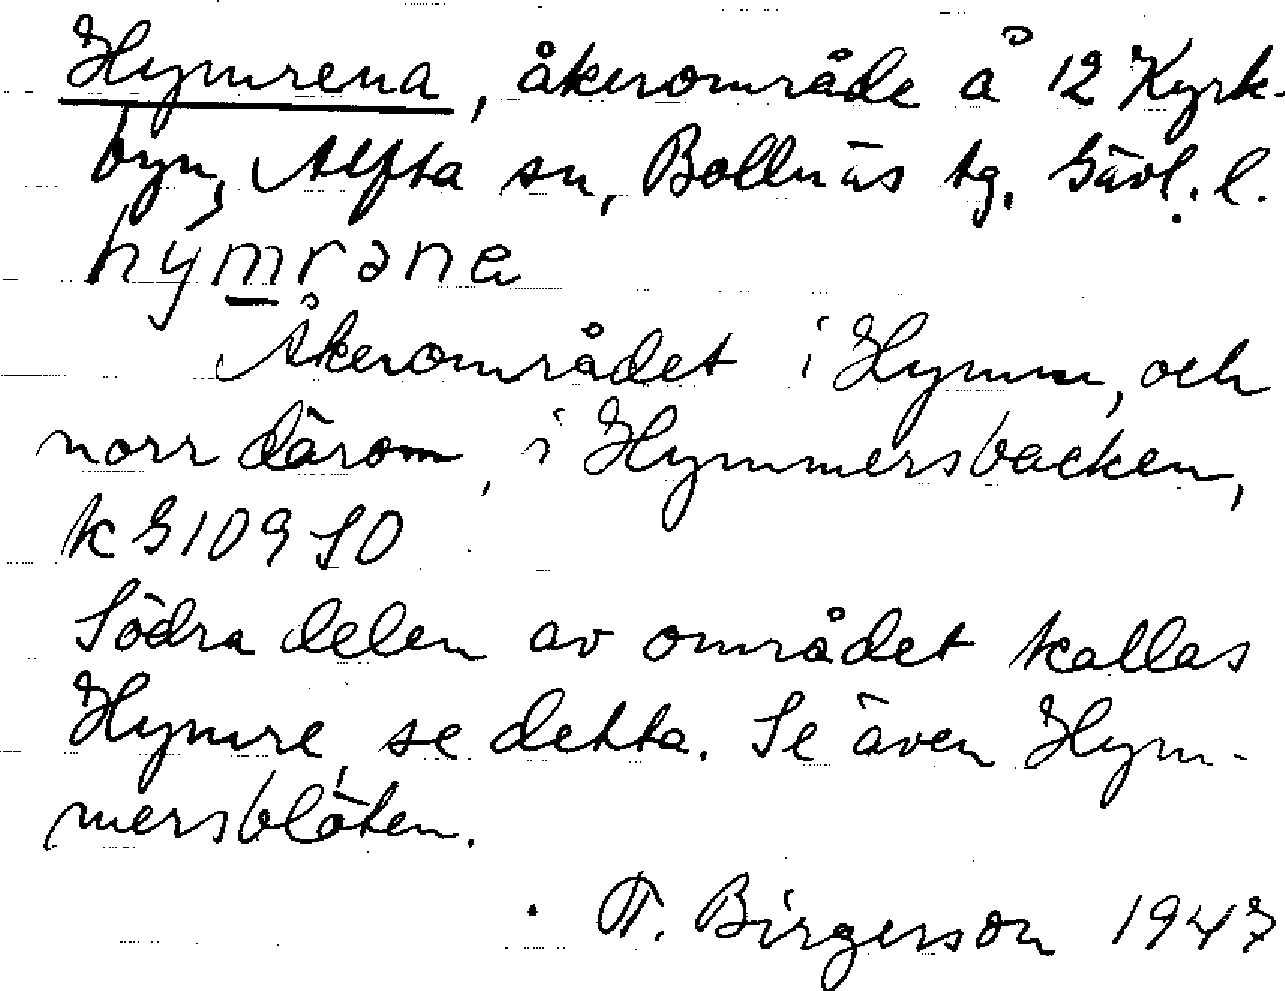 Hymrena, åkerområde å 12 Kyrk-
byn, Alfta sn, Bollnäs tg. Gävl. l.
hymrəna
Åkerområdet i Hymm, och
norr därom, i Hymmersbacken,
k G109 SO
Södra delen av området kallas
Hymre, se detta. Se även Hym-
mersblöten.
T. Birgerson 1947